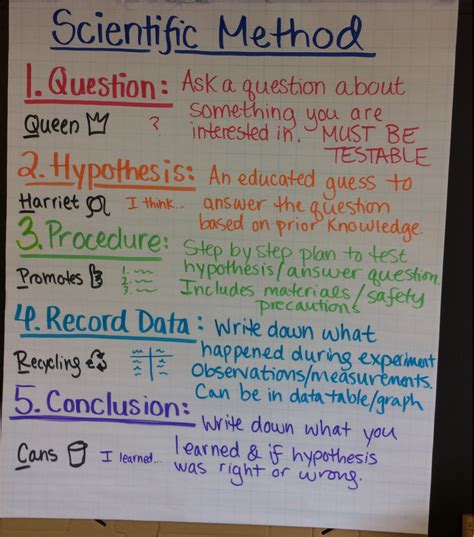 Scientific Method
1. Question: Ask a question about
something you are
Queen ? interested in. MUST BE
TESTABLE
2. Hypothesis: An educated guess to
Harriet I think... answer the question
based on prior Knowledge.
3. Procedure: Step by step plan to test
hypothesis/answer question.
Promotes 1. 2. 3. Includes materials/safety
precautions
4. Record Data: Write down what
happened during experiment
Recycling Observations/measurements.
Can be in data table/graph
5. Conclusion: Write down what you
Cans I learned... learned & if hypothesis
was right or wrong.